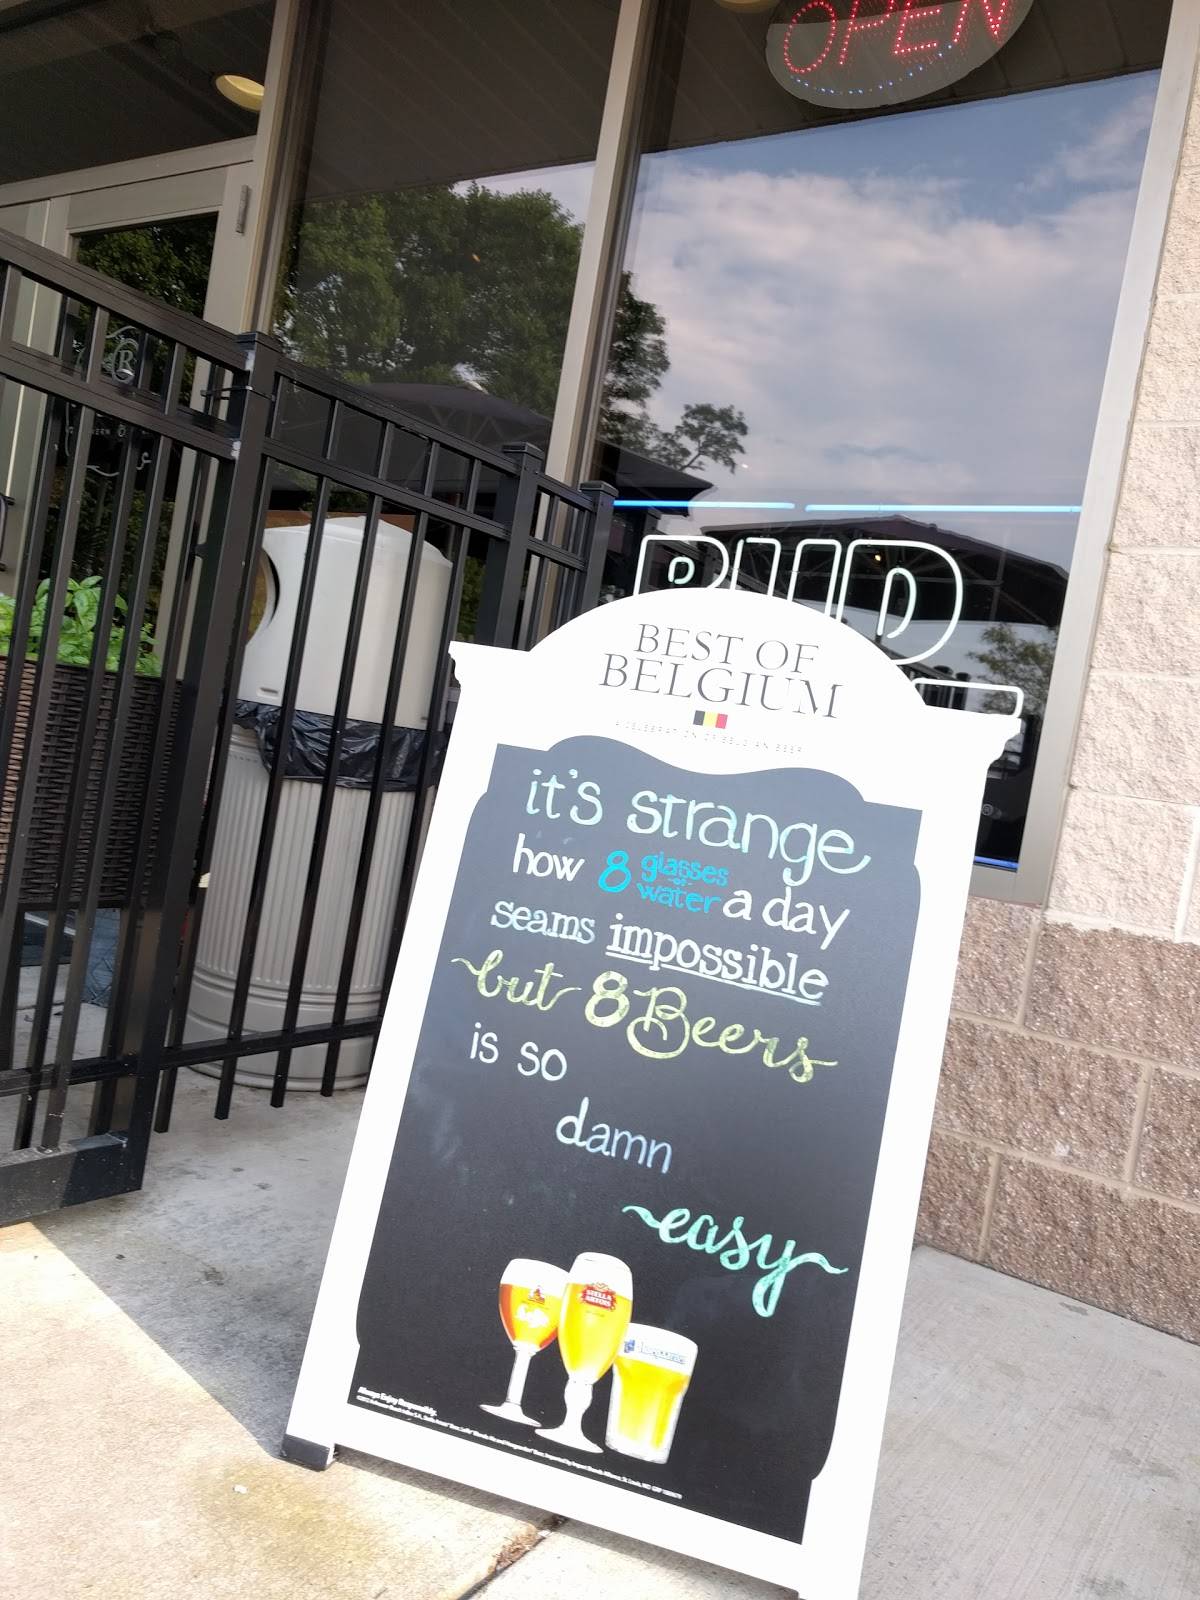 OPEN
R
BUD
BEST OF
BELGIUM
A CELEBRATION OF BELGIAN BEER
it's strange
how 8 glasses of water a day
seams impossible
but 8 Beers
is so
damn
easy
STELLA
ARTOIS
Always Enjoy Responsibly.